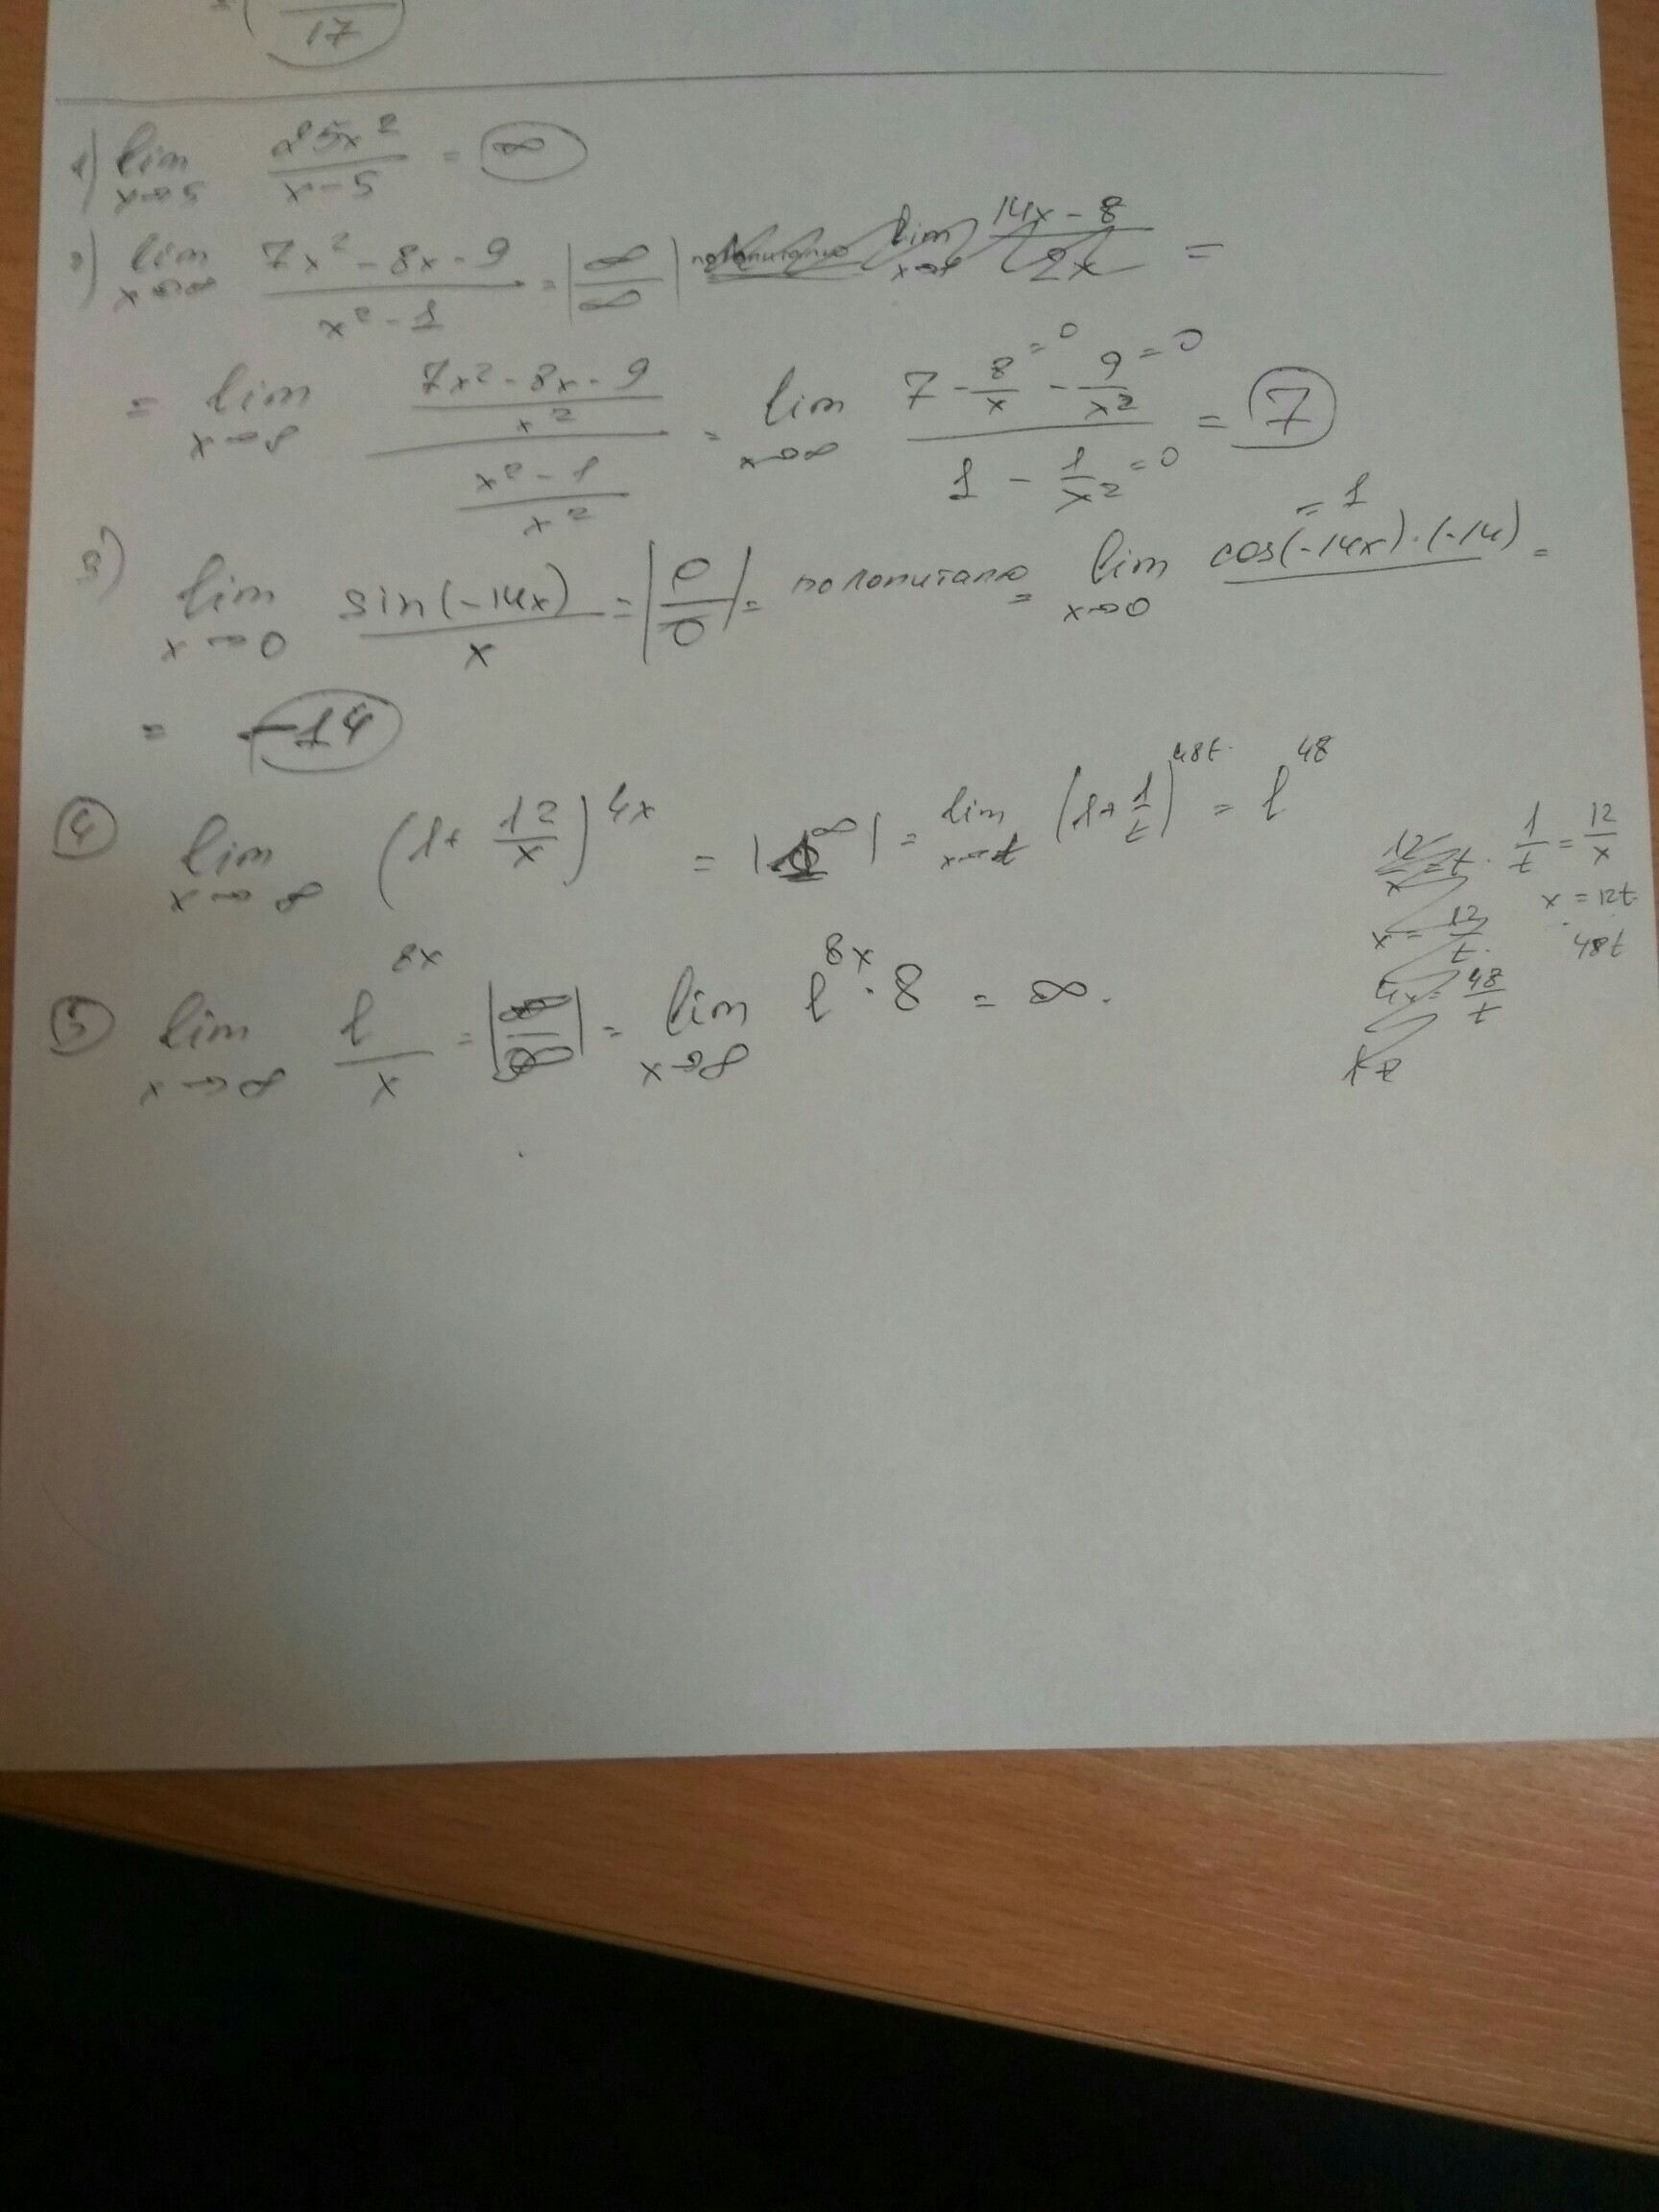 17
1) lim x→5 25x² / x-5 = ∞
2) lim x→∞ 7x² - 8x - 9 / x² - 1 = |∞/∞| по Лопиталю lim 14x - 8 / 2x =
= lim x→∞ (7x² - 8x - 9 / x²) / (x² - 1 / x²) = lim x→∞ (7 - 8/x ⁼⁰ - 9/x² ⁼⁰) / (1 - 1/x² ⁼⁰) = 7
3) lim x→0 sin(-14x) / x = |0/0| = по Лопиталю = lim x→0 cos(-14x)·(-14) =
= 1
= -14
4 lim x→∞ (1 + 12/x)^4x = |1^∞| = lim (1 + 1/t)^48t = l^48
12/x = t. 1/t = 12/x
x = 12/t. x = 12t.
4x = 48/t 48t
5 lim x→∞ l^8x / x = |∞/∞| = lim x→∞ l^8x · 8 = ∞.